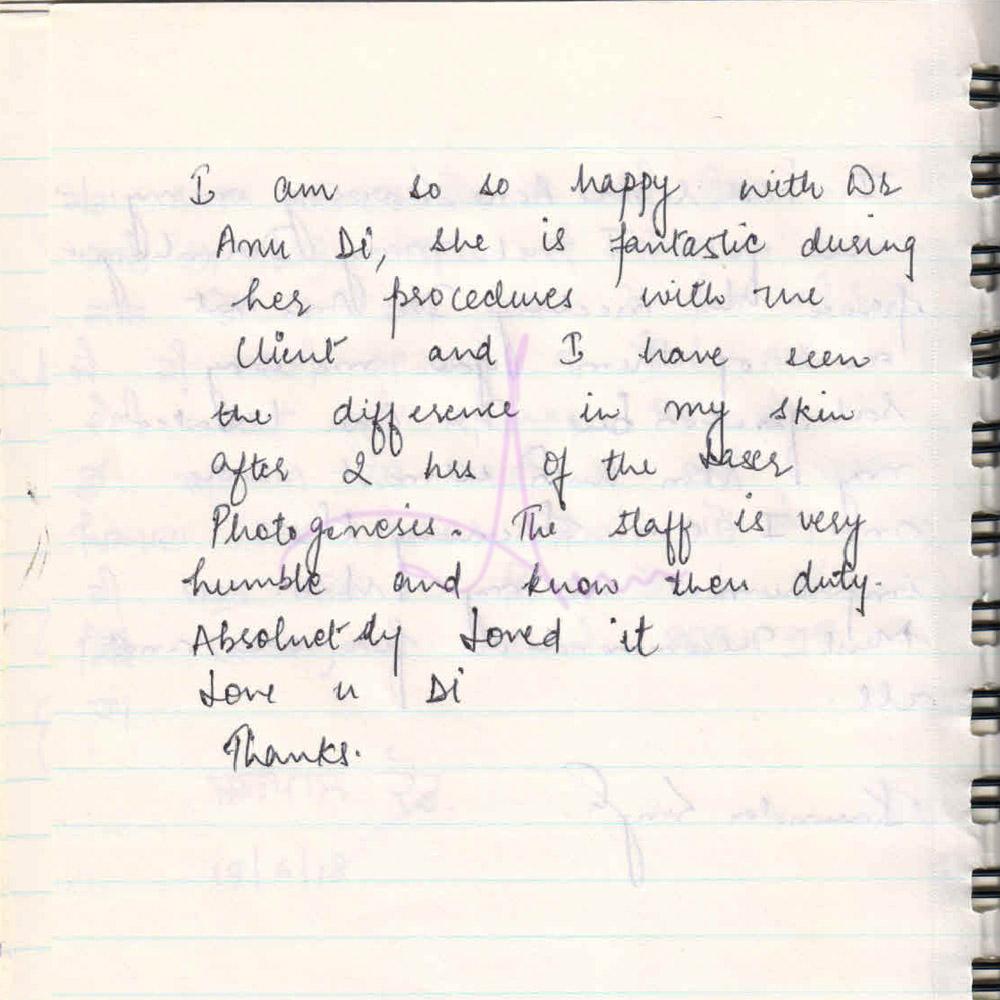 I am so so happy with Dr
Anu Di, she is fantastic during
her procedures with me
Client and I have seen
the difference in my skin
after 2 hrs of the Laser
Photogenesis. The staff is very
humble and know their duty.
Absolutely Loved it
Love u Di
Thanks.